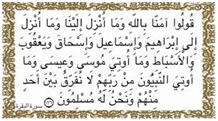 قُولُوا آمَنَّا بِاللَّهِ وَمَا أُنْزِلَ إِلَيْنَا وَمَا أُنْزِلَ
إِلَى إِبْرَاهِيمَ وَإِسْمَاعِيلَ وَإِسْحَاقَ وَيَعْقُوبَ
وَالْأَسْبَاطِ وَمَا أُوتِيَ مُوسَى وَعِيسَى وَمَا
أُوتِيَ النَّبِيُّونَ مِنْ رَبِّهِمْ لَا نُفَرِّقُ بَيْنَ أَحَدٍ
مِنْهُمْ وَنَحْنُ لَهُ مُسْلِمُونَ
سورة البقرة